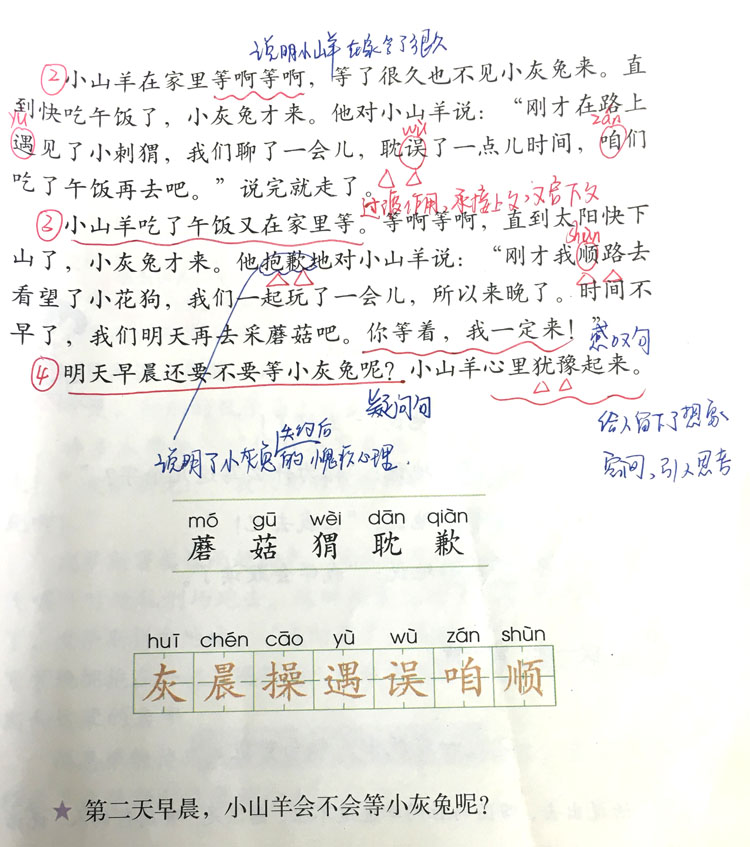 说明小山羊在家等了很久
②小山羊在家里等啊等啊，等了很久也不见小灰兔来。直
到快吃午饭了，小灰兔才来。他对小山羊说：“刚才在路上
yù wù zán
遇见了小刺猬，我们聊了一会儿，耽误了一点儿时间，咱们
吃了午饭再去吧。”说完就走了。
过渡作用，承接上文，又启下文
③小山羊吃了午饭又在家里等。等啊等啊，直到太阳快下
shùn
山了，小灰兔才来。他抱歉地对小山羊说：“刚才我顺路去
看望了小花狗，我们一起玩了一会儿，所以来晚了。时间不
早了，我们明天再去采蘑菇吧。你等着，我一定来！”
感叹句
④明天早晨还要不要等小灰兔呢？小山羊心里犹豫起来。
疑问句
给人留下了想象
空间，引人思考
失约后
说明了小灰兔的愧疚心理.
mó gū wèi dān qiàn
蘑 菇 猬 耽 歉
huī chén cāo yù wù zán shùn
灰 晨 操 遇 误 咱 顺
★ 第二天早晨，小山羊会不会等小灰兔呢？